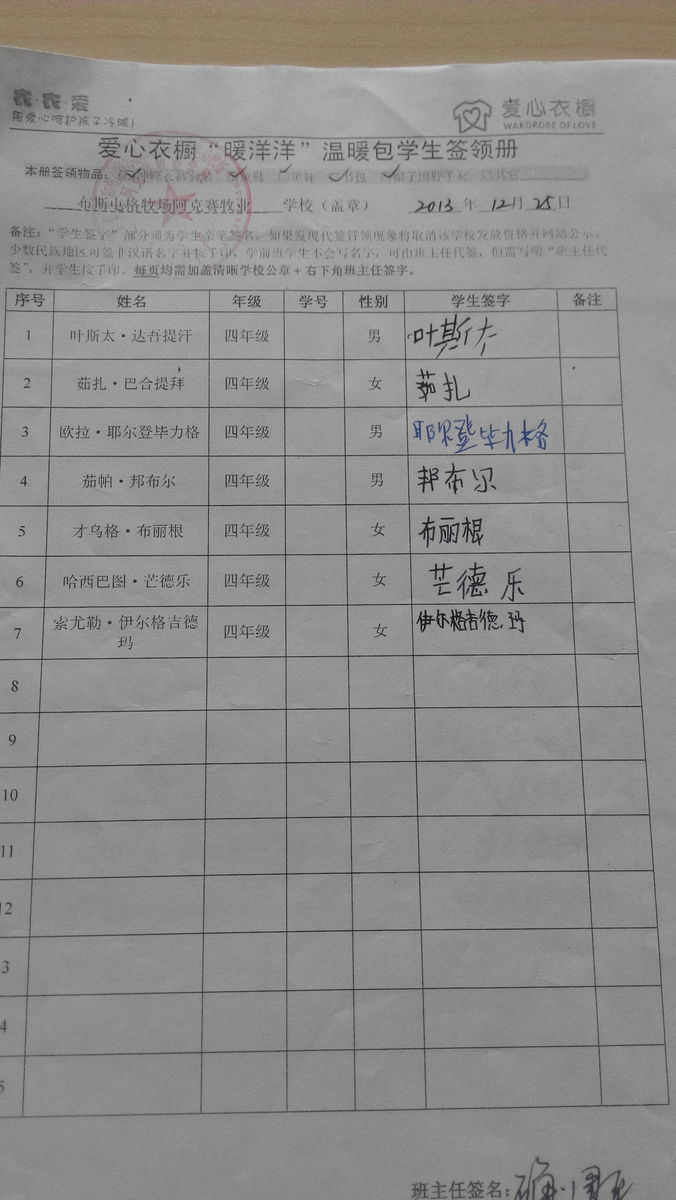 衣·衣·爱
用爱心呵护孩子冷暖!
爱心衣橱
WARDROBE OF LOVE
爱心衣橱“暖洋洋”温暖包学生签领册
本册签领物品:
布斯屯格牧场阿克赛牧业 学校(盖章) 2013 年 12 月 25 日
备注:“学生签字”部分须为学生亲笔签名,如果发现代签冒领现象将取消该学校发放资格并网络公示。
少数民族地区可签非汉语名字并按手印,学前班学生不会写名字,可由班主任代签,但需写明“班主任代
签”,并学生按手印。每页均需加盖清晰学校公章+右下角班主任签字。
序号 姓名 年级 学号 性别 学生签字 备注
1 叶斯太·达吾提汗 四年级 男 叶斯太
2 茹扎·巴合提拜 四年级 女 茹扎
3 欧拉·耶尔登毕力格 四年级 男 耶尔登毕力格
4 茄帕·邦布尔 四年级 男 邦布尔
5 才乌格·布丽根 四年级 女 布丽根
6 哈西巴图·芒德乐 四年级 女 芒德乐
7 索尤勒·伊尔格吉德 四年级 女 伊尔格吉德.玛
玛
8
9
10
11
12
3
4
5
班主任签名: